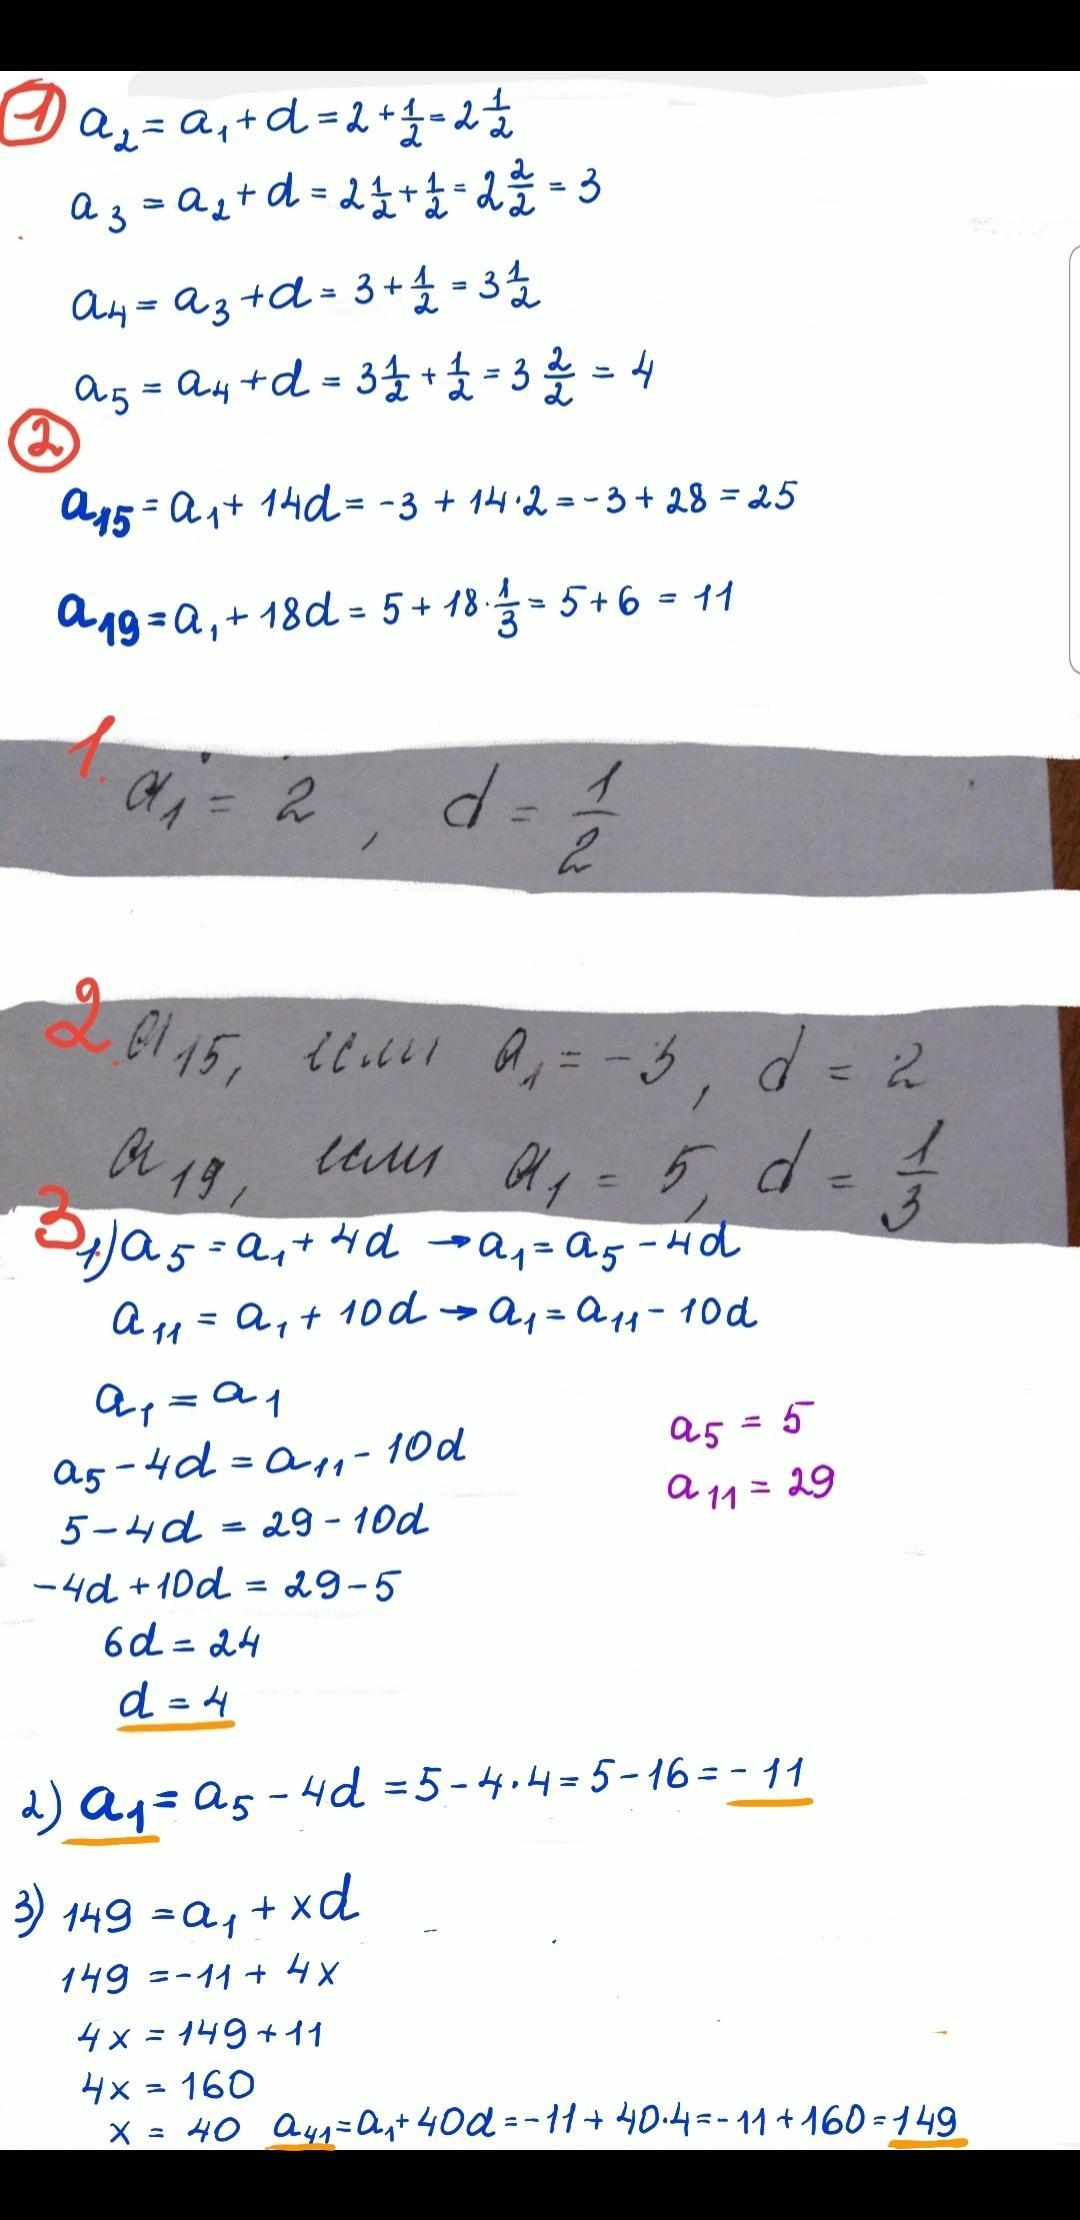 1
a₂ = a₁ + d = 2 + 1/2 = 2 1/2
a₃ = a₂ + d = 2 1/2 + 1/2 = 2 2/2 = 3
a₄ = a₃ + d = 3 + 1/2 = 3 1/2
a₅ = a₄ + d = 3 1/2 + 1/2 = 3 2/2 = 4
2
a₁₅ = a₁ + 14d = -3 + 14·2 = -3 + 28 = 25
a₁₉ = a₁ + 18d = 5 + 18·1/3 = 5 + 6 = 11
1. a₁ = 2, d = 1/2
2. a₁₅, если a₁ = -3, d = 2
a₁₉, если a₁ = 5, d = 1/3
3
1) a₅ = a₁ + 4d → a₁ = a₅ - 4d
a₁₁ = a₁ + 10d → a₁ = a₁₁ - 10d
a₁ = a₁
a₅ = 5
a₅ - 4d = a₁₁ - 10d
a₁₁ = 29
5 - 4d = 29 - 10d
-4d + 10d = 29 - 5
6d = 24
d = 4
2) a₁ = a₅ - 4d = 5 - 4·4 = 5 - 16 = -11
3) 149 = a₁ + xd
149 = -11 + 4x
4x = 149 + 11
4x = 160
x = 40 a₄₁ = a₁ + 40d = -11 + 40·4 = -11 + 160 = 149